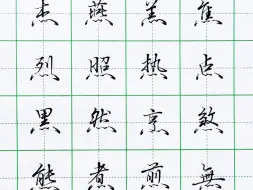 杰 燕 羔 焦
烈 照 热 点
黑 然 烹 煞
熊 煮 煎 無